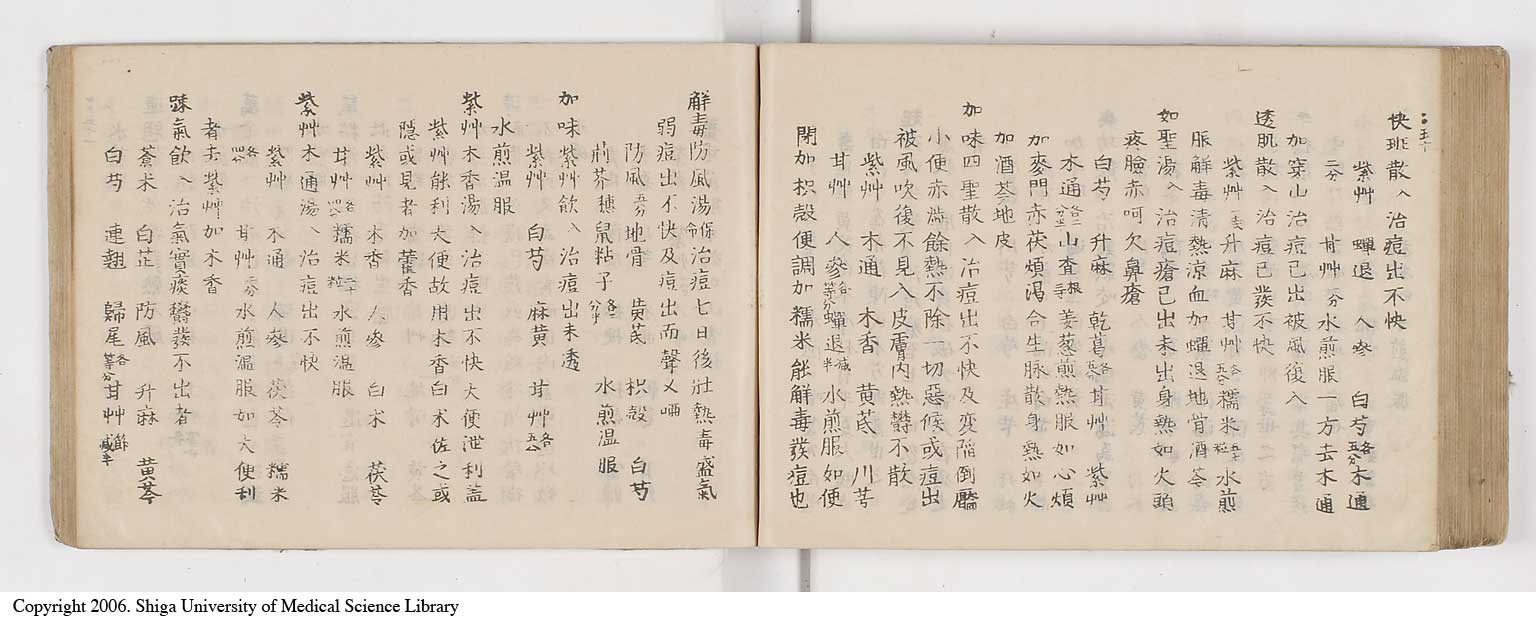 五十
快班散入治痘出不快
紫艸 蟬退 人參 白芍各五分木通
二分 甘艸分水煎服一方去木通
加穿山治痘已出被風後入
透肌散入治痘已發不快
紫艸升麻甘艸各五分糯米五十粒水煎
服解毒清熱凉血加蟬退地骨酒芩
如聖湯入治痘瘡已出未出身熱如火頭
疼臉赤呵欠鼻瘡
白芍 升麻 乾葛各甘艸 紫艸
木通各山査根姜葱煎熱服如心煩
加麥門赤茯煩渴合生脉散身熱如火
加酒芩地皮
加味四聖散入治痘出不快及変陷倒黶
小便赤澁餘熱不除一切惡候或痘出
被風吹後不見入皮膚内熱欝不散
紫艸 木通 木香 黄芪 川芎
甘艸 人參各等分蟬退減半水煎服如便
閉加枳殻便調加糯米能解毒發痘也
解毒防風湯保命治痘七日後壯熱毒盛氣
弱痘出不快及痘出而聲乂啞
防風五分地骨 黄芪 枳殻 白芍
荊芥穗鼠粘子各 水煎温服
加味紫艸飲入治痘出未透
紫艸 白芍 麻黄 甘艸各五分
水煎温服
紫艸木香湯入治痘出不快大便泄利蓋
紫艸能利大便故用木香白术佐之或
隱或見者加藿香
紫艸 木香 人參 白术 茯苓
甘艸各四分糯米三十粒水煎温服
紫艸木通湯入治痘出不快
紫艸 木通 人參 茯苓 糯米
各四分 甘艸二分水煎温服如大便利
者去紫艸加木香
踈氣飲入治氣實痰欝發不出者
蒼术 白芷 防風 升麻 黄芩
白芍 連翹 歸尾各等分甘艸節減半
Copyright 2006. Shiga University of Medical Science Library